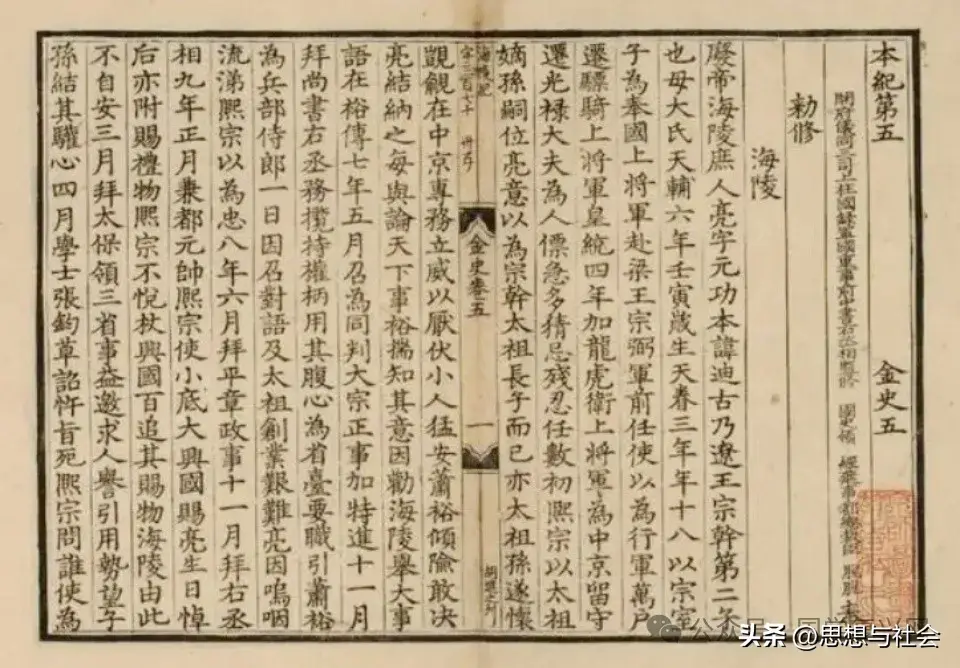 本紀第五 金史五
開府儀同三司上柱國録軍國重事前中書右丞相監修 國史領 經筵事都總裁臣 脱脱 奉
勅修
海陵
廢帝海陵庶人亮字元功本諱迪古乃遼王宗幹第二子
也母大氏天輔六年壬寅歲生天眷三年年十八以宗室
子為奉國上將軍赴梁王宗弼軍前任使以為行軍萬戶
遷驃騎上將軍皇統四年加龍虎衛上將軍為中京留守
遷光禄大夫為人僄急多猜忌殘忍任數初熙宗以太祖
嫡孫嗣位亮意以為宗幹太祖長子而已亦太祖孫遂懷
金史卷五 一
覬覦在中京專務立威以厭伏小人猛安蕭裕傾險敢决
亮結納之每與論天下事裕揣知其意因勸海陵舉大事
語在裕傳七年五月召為同判大宗正事加特進十一月
拜尚書右丞務攬持權柄用其腹心為省臺要職引蕭裕
為兵部侍郎一日因召對語及太祖創業艱難亮因嗚咽
流涕熙宗以為忠八年六月拜平章政事十一月拜右丞
相九年正月兼都元帥熙宗使小底大興國賜亮生日悼
后亦附賜禮物熙宗不悦杖興國百追其賜物海陵由此
不自安三月拜太保領三省事益邀求人譽引用勢望子
孫結其驩心四月學士張鈞草詔忤旨死熙宗問誰使為
头条 @思想与社会